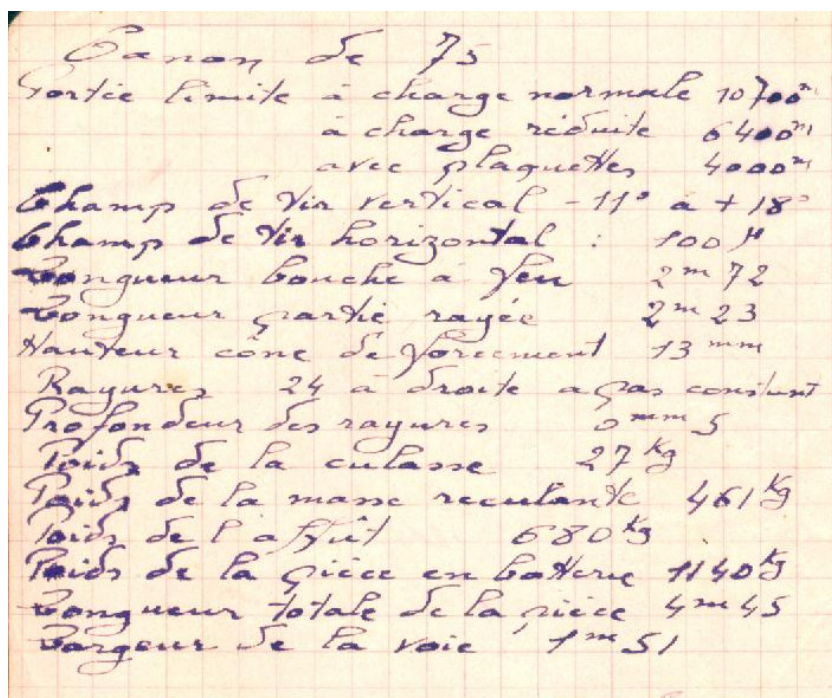 Canon de 75
Portée limite à charge normale 10700m
à charge réduite 6400m
avec plaquettes 4000m
Champ de tir vertical -11° à +18°
Champ de tir horizontal : 100
Longueur bouche à feu 2m 72
Longueur partie rayée 2m 23
Hauteur cône de forcement 13mm
Rayures 24 à droite a pas constant
Profondeur des rayures 0mm 5
Poids de la culasse 27Kg
Poids de la masse reculante 461Kg
Poids de l'affût 680Kg
Poids de la pièce en batterie 1140Kg
Longueur totale de la pièce 4m 45
Largeur de la voie 1m 51